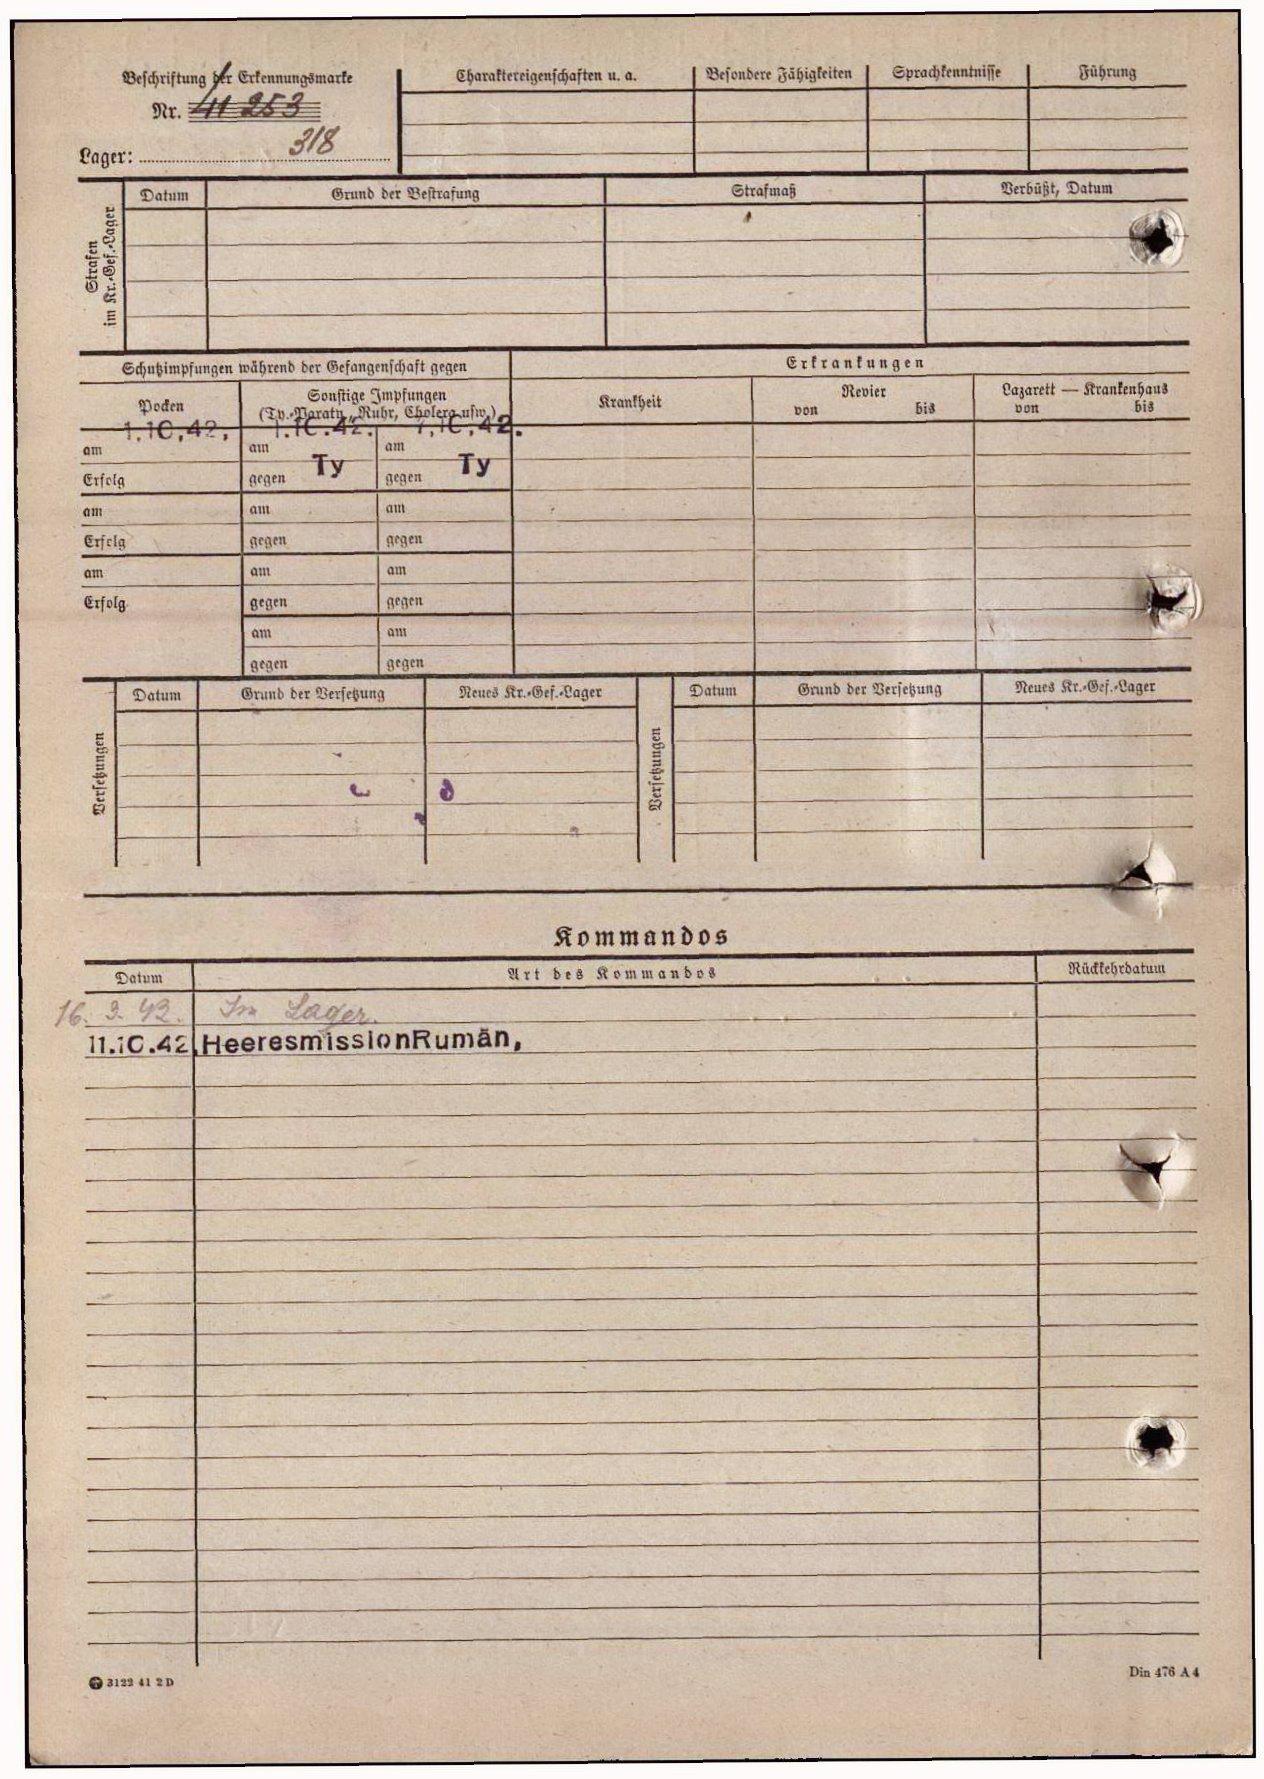 Beschriftung der Erkennungsmarke
Nr. 41 253
Lager: 318
Charaktereigenschaften u. a. Besondere Fähigkeiten Sprachkenntnisse Führung
Strafen im Kr.-Gef.-Lager
Datum Grund der Bestrafung Strafmaß Verbüßt, Datum
Schutzimpfungen während der Gefangenschaft gegen
Erkrankungen
Pocken
Sonstige Impfungen
(Ty.-Paraty., Ruhr, Cholera usw.)
Krankheit
Revier
von bis
Lazarett — Krankenhaus
von bis
1.10.42. 1.10.42. 7.10.42.
am am am
Ty Ty
Erfolg gegen gegen
am am am
Erfolg gegen gegen
am am am
Erfolg gegen gegen
am am
gegen gegen
Versetzungen
Datum Grund der Versetzung Neues Kr.-Gef.-Lager
Versetzungen
Datum Grund der Versetzung Neues Kr.-Gef.-Lager
Kommandos
Datum Art des Kommandos Rückkehrdatum
16. 3. 42. Im Lager.
11.10.42. HeeresmissionRumän,
3122 41 2 D
Din 476 A 4